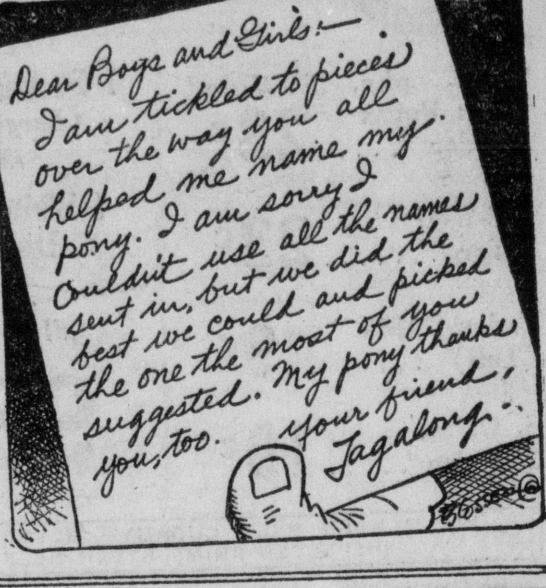 Dear Boys and Girls:—
I am tickled to pieces
over the way you all
helped me name my
pony. I am sorry I
couldn't use all the names
sent in, but we did the
best we could and picked
the one the most of you
suggested. My pony thanks
you, too. Your friend,
Tagalong.
Blosser